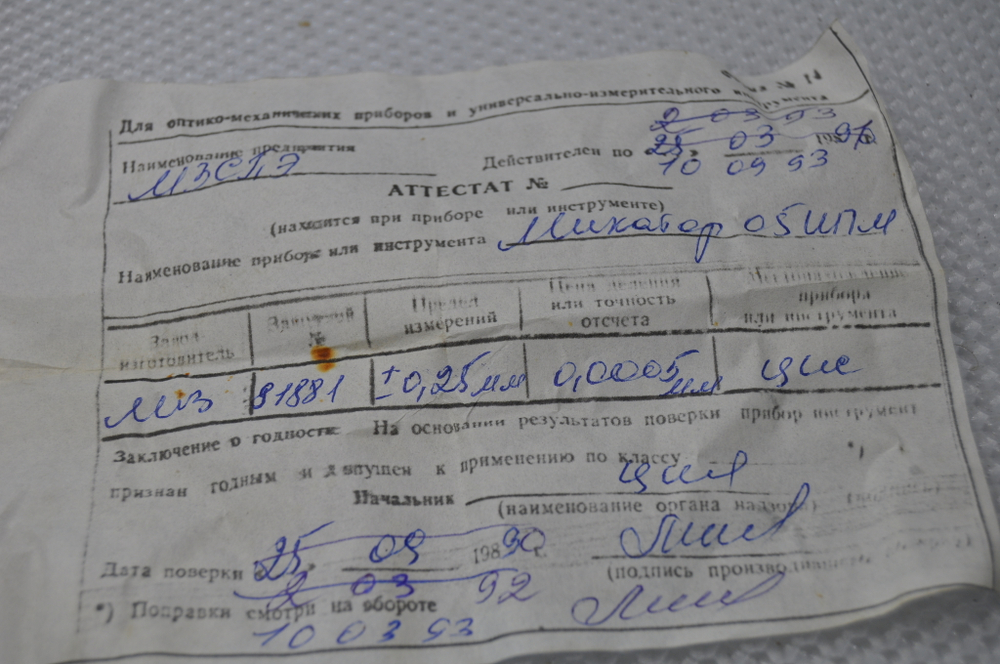 Для оптико-механических приборов и универсально-измерительного инструмента
№ 14
Наименование предприятия
МЗСПЭ
2 03 93
Действителен по 25 03 198 г.
10 09 93
АТТЕСТАТ №
(находится при приборе или инструменте)
Наименование прибора или инструмента Микатор 05ИПМ
Завод-изготовитель Заводской № Предел измерений Цена деления или точность отсчета Местонахождение прибора или инструмента
МИЗ 91881 ±0,25мм 0,0005мм ЦИС
Заключение о годности: На основании результатов поверки прибор инструмент
признан годным и допущен к применению по классу *)
Начальник
(наименование органа надзора) (подпись)
Дата поверки 25 09 198 90 г.
(подпись производившего поверку)
2 03 92
*) Поправки смотри на обороте
10 03 93